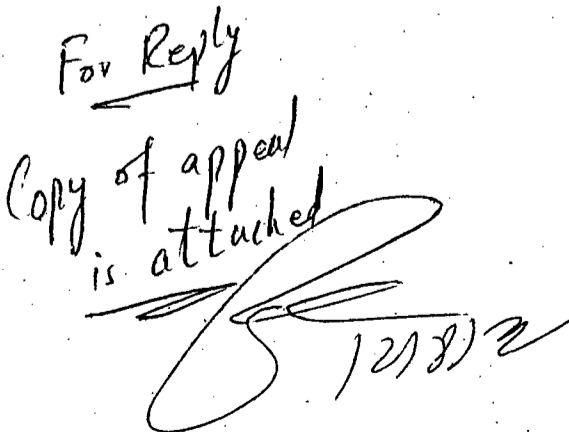 For Reply
Copy of appeal
is attached